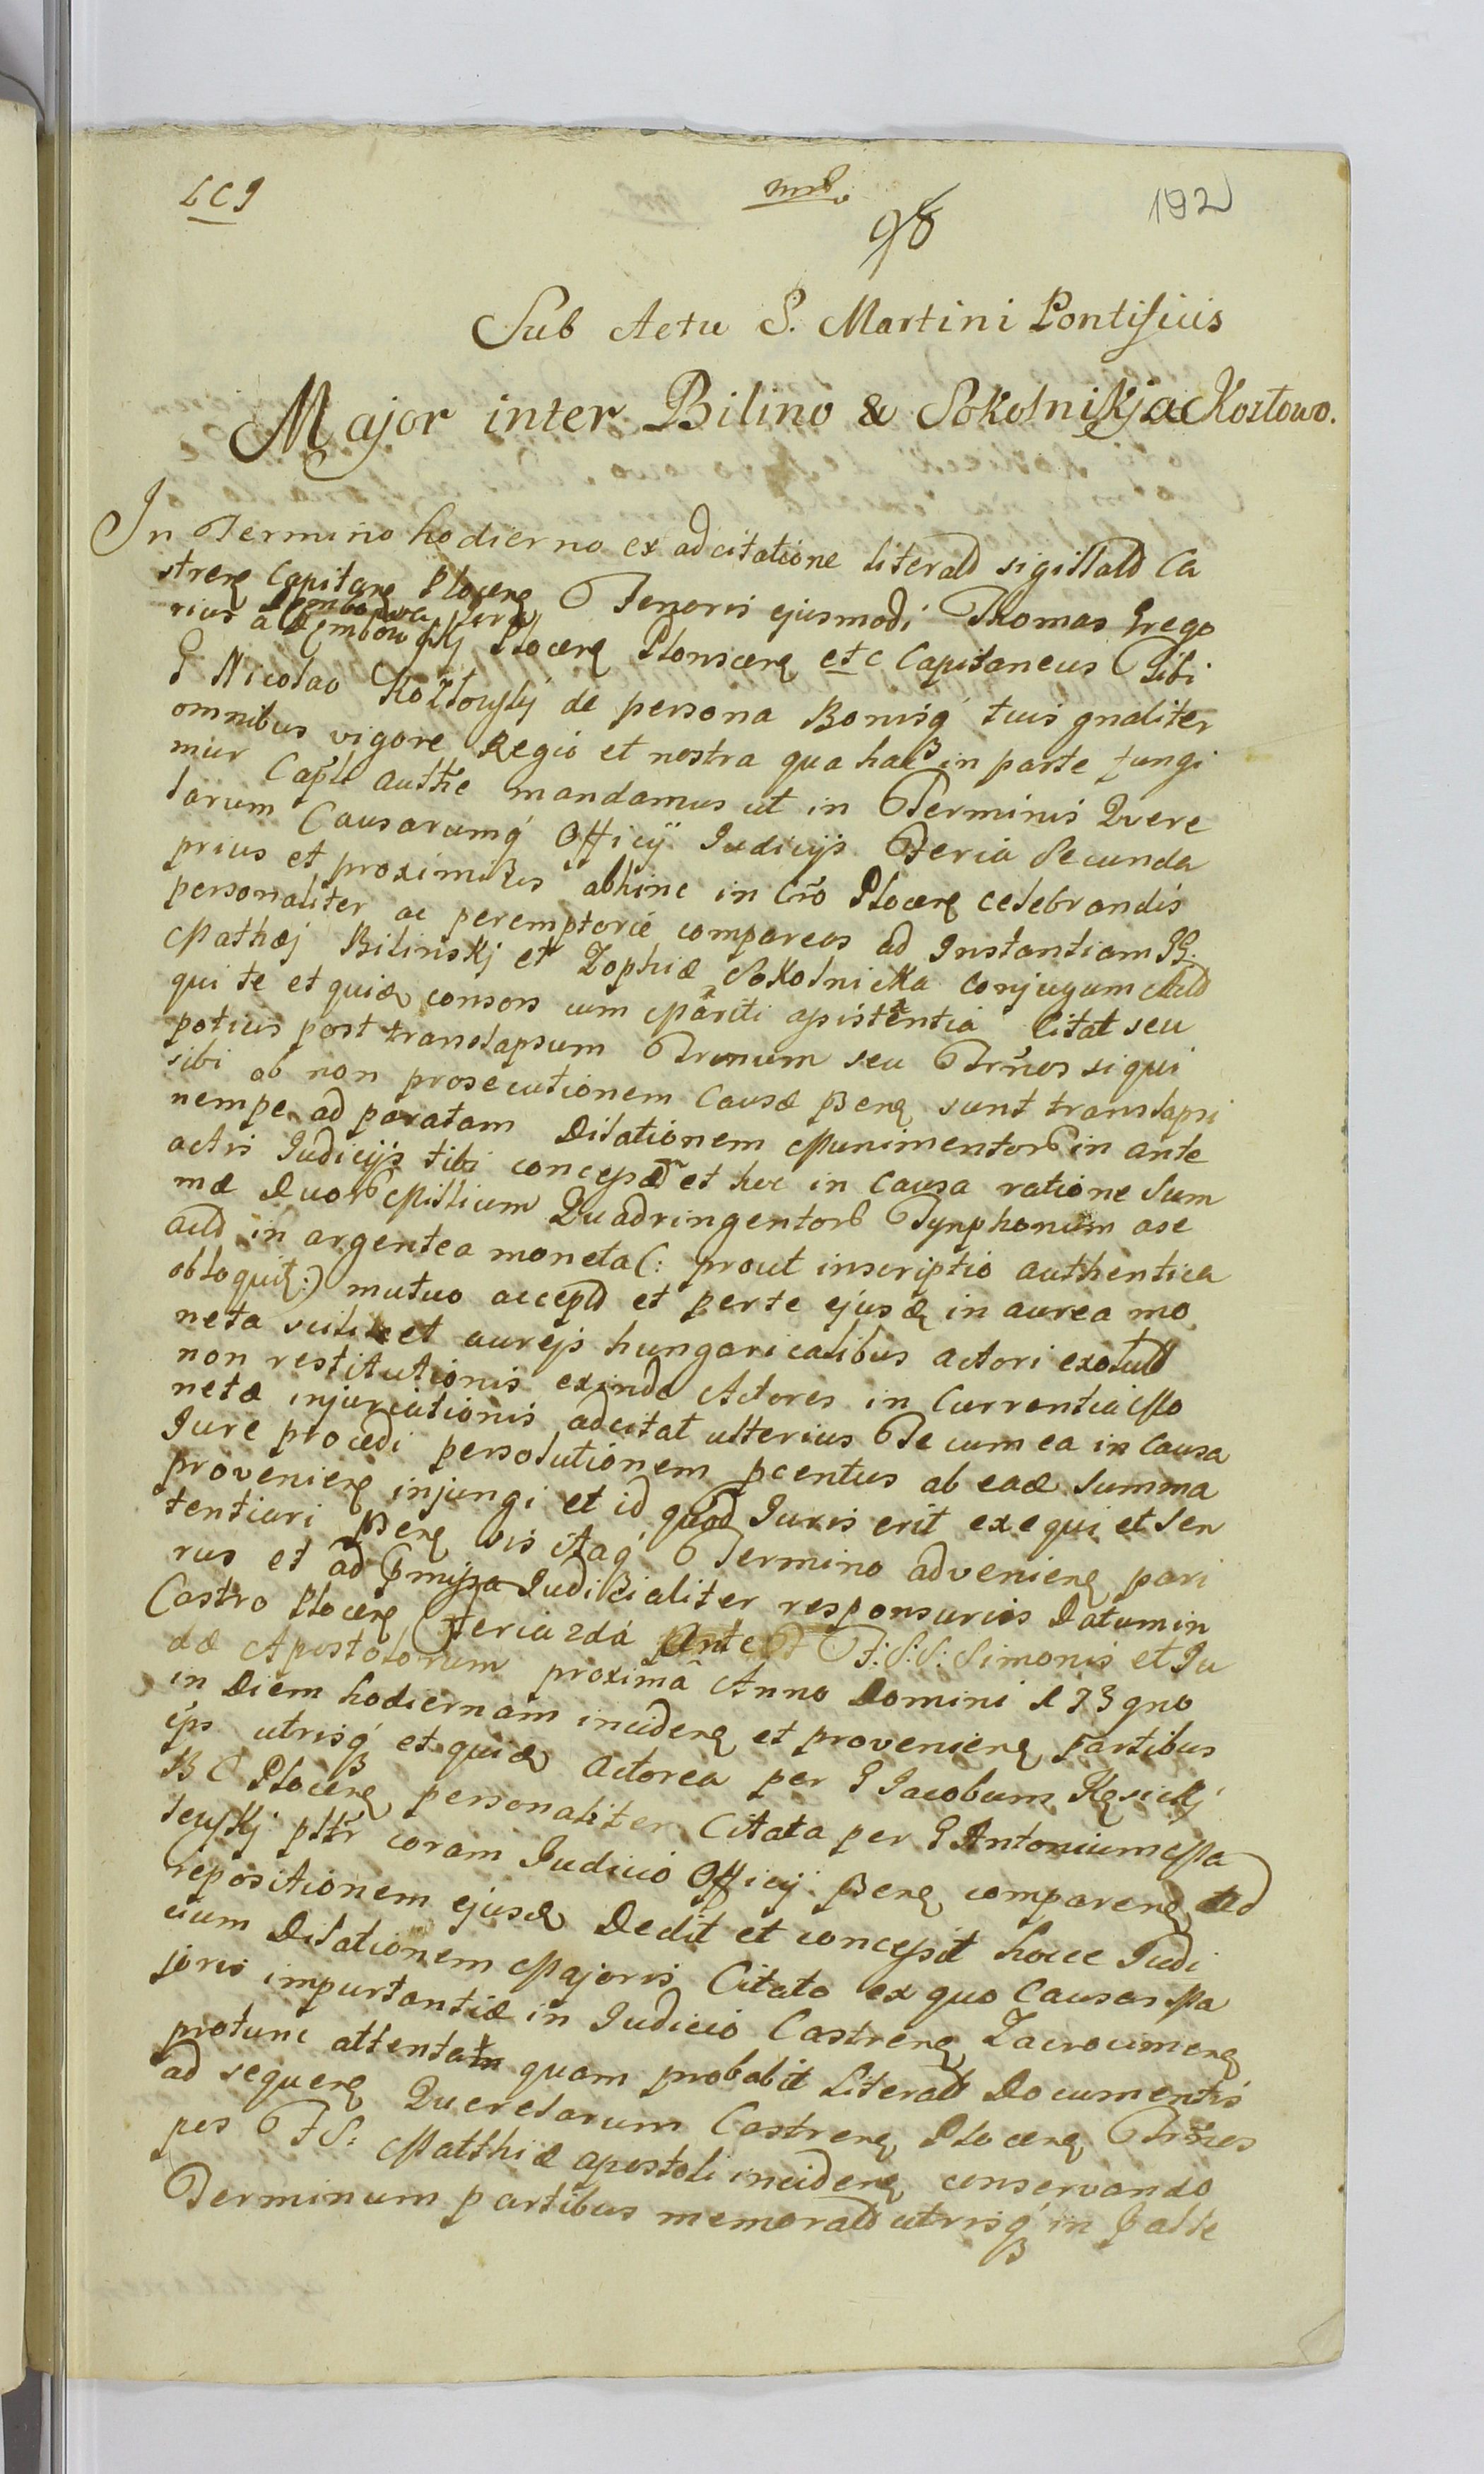 L C I
98
192
Sub Actu S. Martini Pontificis
Major inter Bilino & Sokolnikj a Kozłowo.
In Termino hodierno ex adcitatione literali sigillali Ca
streñ Capitañ Płoceñ Tenoris ejusmodi Thomas Grego
rius a Płoceñ Płonsceñ etc Capitaneus Tibi
G Nicolao Kozłowskj de persona Bonisq tuis gnaliter
omnibus vigore Regio et nostra qua hac in parte fungi
mur Capli autthe mandamus ut in Terminis Quere
larum Causarumq Officij Judicijs Feria Secunda
prius et proximius abhinc in Cro Płoceñ celebrandis
personaliter ac peremptorie compareas ad Instantiam GG.
Mathæj Bilinskj et Zophiæ Sokolnicka Conjugum
qui te et quidem consors cum Mariti assistentia Citat seu
potius post translapsum Trmnum seu Trnos si qui
sibi ob non prosecutionem Causæ pseñ sunt translapsi
nempe ad paratam Dilationem Munimentorum in ante
actis Judicijs tibi concessam et hoc in Causa ratione Sum
mæ Duorum Millium Quadringentorum Tynphonum ase
in argentea moneta (: prout inscriptio authentica
obloquit :) mutuo accept et per te ejusdem in aurea mo
neta scilicet aureis hungaricalibus actori
non restitutionis exinde Actores in Currentia Mo
netæ injuriationis adcitat ulterius Te cum ea in Causa
Jure procedi persolutionem pcentus ab eadem Summa
provenieñ injungi et id quod Juris erit exequi et Sen
tentiari pseñ sis itaq Termino advenieñ pari
rus et ad pmissa Judicialiter responsurus Datum in
Castro Płoceñ Feria 2da Ante F: S: S: Simonis et Ju
dæ Apostolorum proxima Anno Domini 173 quo
in Diem hodiernam incideñ et provenieñ Partibus
ips utrisq et quidem Actorea per G Jacobum Kęsickj
B C Płoceñ personaliter Citata per G Antonium Ma
lewskj pltr coram Judicio Officij pseñ compareñ ad
repositionem ejusdem Dedit et concessit hocce Judi
cium Dilationem Majoris Citato ex quo Causas Ma
joris importantiæ in Judicio Castreñ Zacrocimeñ
protunc attentatæ quam probabit Literali Documentis
ad sequeñ Querelarum Castreñ Płoceñ Trnos
pos F S: Matthiæ apostoli incideñ conservando
Terminum partibus memorali utrisq in